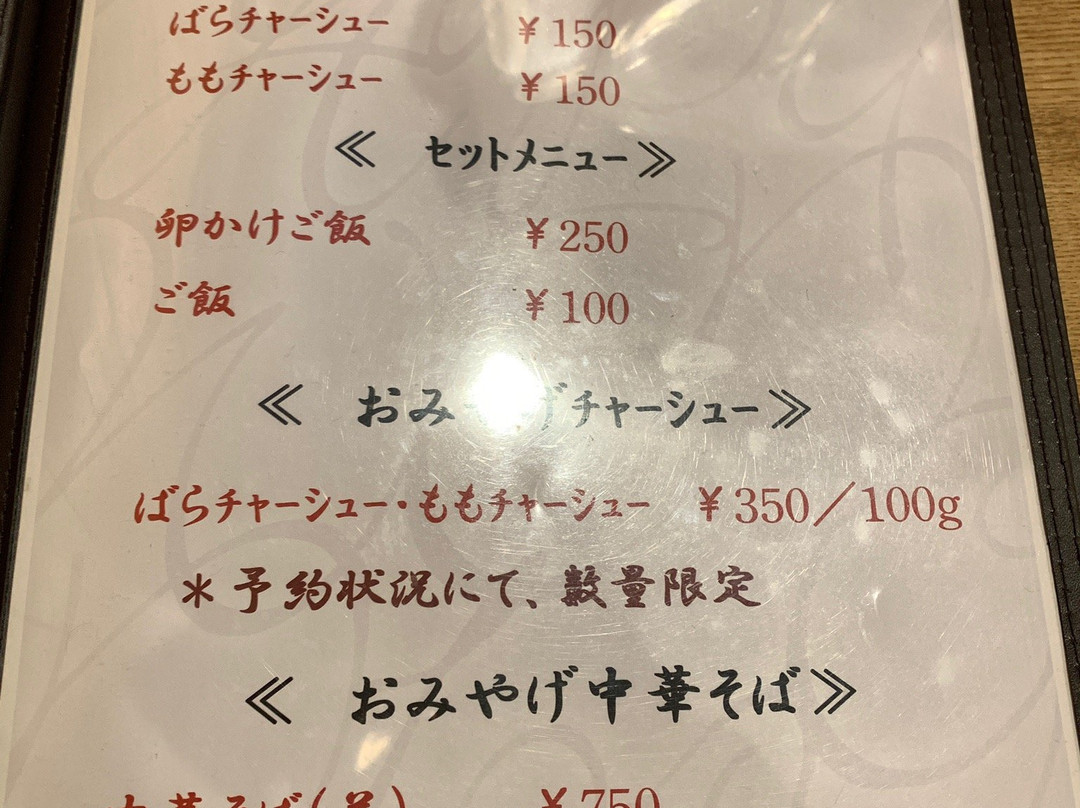 ばらチャーシュー ¥150
ももチャーシュー ¥150
≪ セットメニュー≫
卵かけご飯 ¥250
ご飯 ¥100
≪ おみやげチャーシュー≫
ばらチャーシュー・ももチャーシュー ¥350/100g
*予約状況にて、数量限定
≪ おみやげ中華そば≫
中華そば(並) ¥750